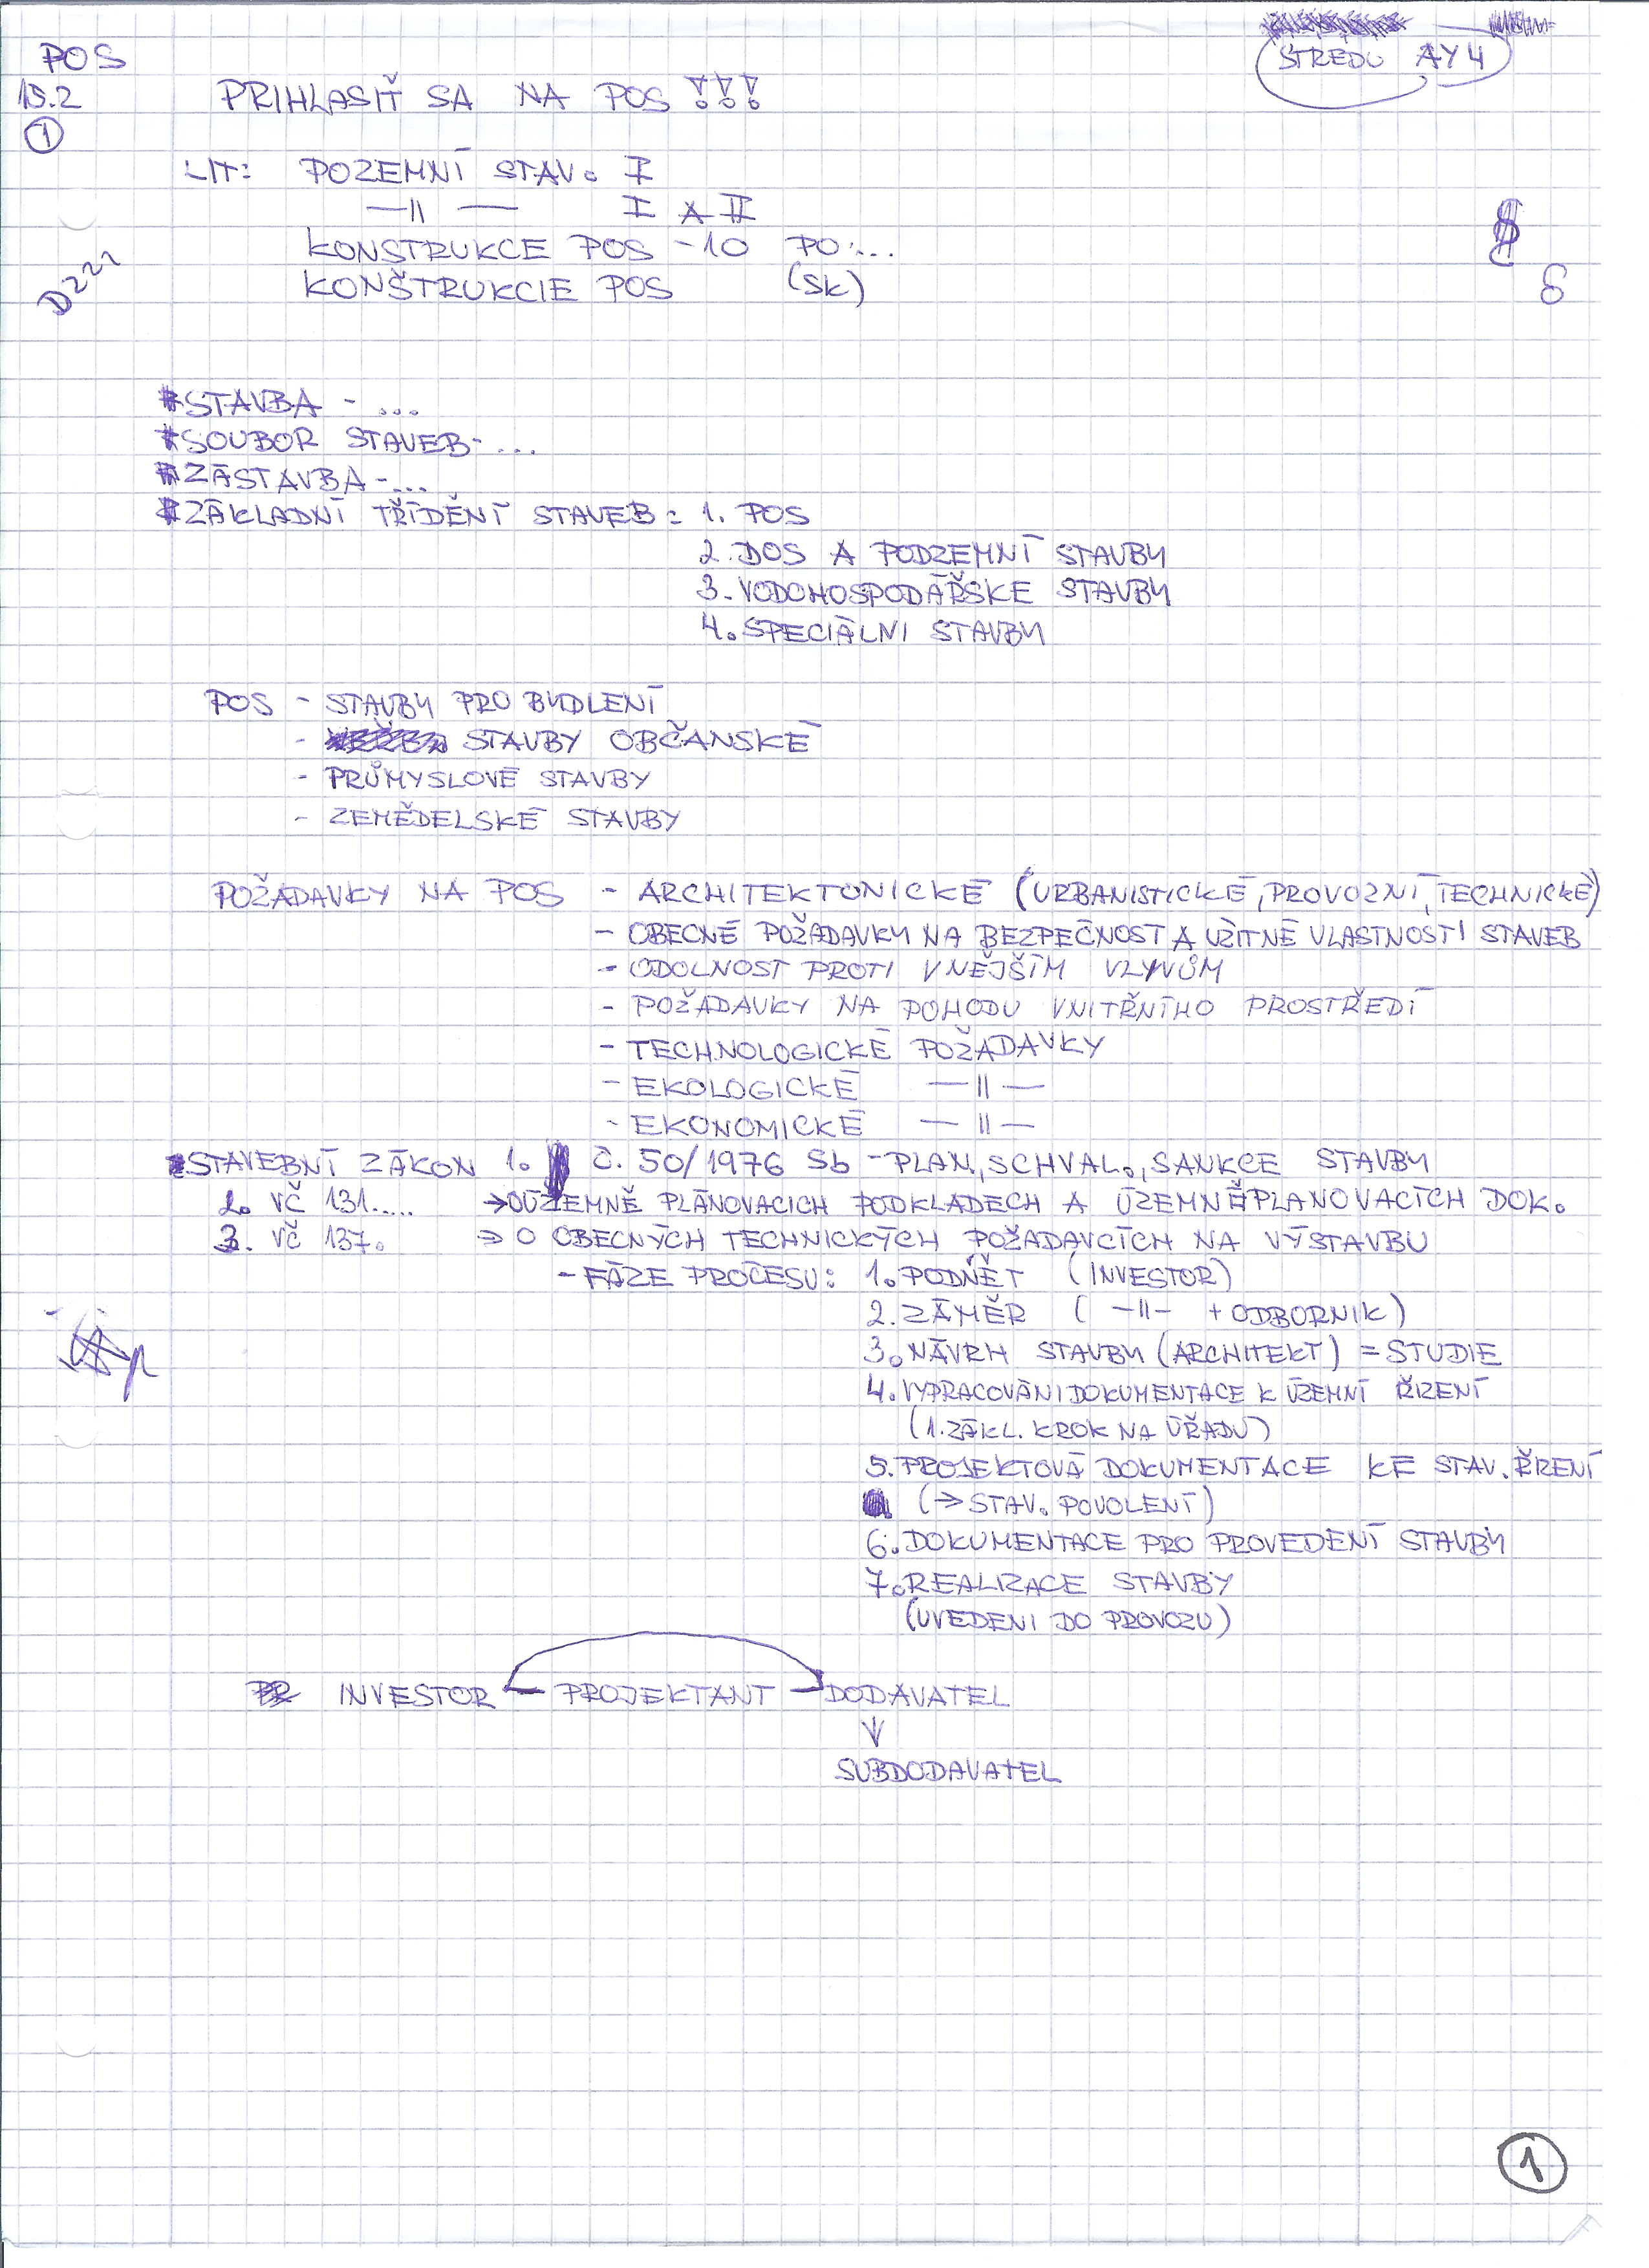 POS
STŘEDU AY4
19.2
PRIHLASIŤ SA NA POS !!!
1
LIT: POZEMNÍ STAV. I
—||— I A II
KONSTRUKCE POS -10 PO...
KONŠTRUKCIE POS (SK)
D222
*STAVBA - ...
*SOUBOR STAVEB- ...
*ZÁSTAVBA - ...
*ZÁKLADNÍ TŘÍDĚNÍ STAVEB: 1. POS
2. DOS A PODZEMNÍ STAVBY
3. VODOHOSPODÁŘSKE STAVBY
4. SPECIÁLNI STAVBY
POS - STAVBY PRO BYDLENÍ
- STAVBY OBČANSKÉ
- PRŮMYSLOVÉ STAVBY
- ZEMĚDELSKÉ STAVBY
POŽADAVKY NA POS - ARCHITEKTONICKÉ (URBANISTICKÉ, PROVOZNÍ, TECHNICKÉ)
- OBECNÉ POŽADAVKY NA BEZPEČNOST A UŽITNÉ VLASTNOSTI STAVEB
- ODOLNOST PROTI VNĚJŠÍM VLYVŮM
- POŽADAVKY NA POHODU VNITŘNÍHO PROSTŘEDÍ
- TECHNOLOGICKÉ POŽADAVKY
- EKOLOGICKÉ —||—
- EKONOMICKÉ —||—
*STAVEBNÍ ZÁKON 1. Č. 50/1976 Sb - PLAN., SCHVAL., SANKCE STAVBY
2. VČ 131..... → O ÚZEMNĚ PLÁNOVACICH PODKLADECH A ÚZEMNĚ PLANOVACÍCH DOK.
3. VČ 137. → O OBECNÝCH TECHNICKÝCH POŽADAVCÍCH NA VÝSTAVBU
- FÁZE PROCESU: 1. PODNĚT (INVESTOR)
2. ZÁMĚR ( -||- + ODBORNIK)
3. NÁVRH STAVBY (ARCHITEKT) = STUDIE
4. VYPRACOVÁNI DOKUMENTACE K ÚZEMNÍ ŘIZENÍ
(1. ZÁKL. KROK NA ÚŘADU)
5. PROJEKTOVÁ DOKUMENTACE KE STAV. ŘRENÍ
(→ STAV. POVOLENÍ)
6. DOKUMENTACE PRO PROVEDENÍ STAVBY
7. REALIZACE STAVBY
(UVEDENI DO PROVOZU)
INVESTOR — PROJEKTANT — DODAVATEL
↓
SUBDODAVATEL
1